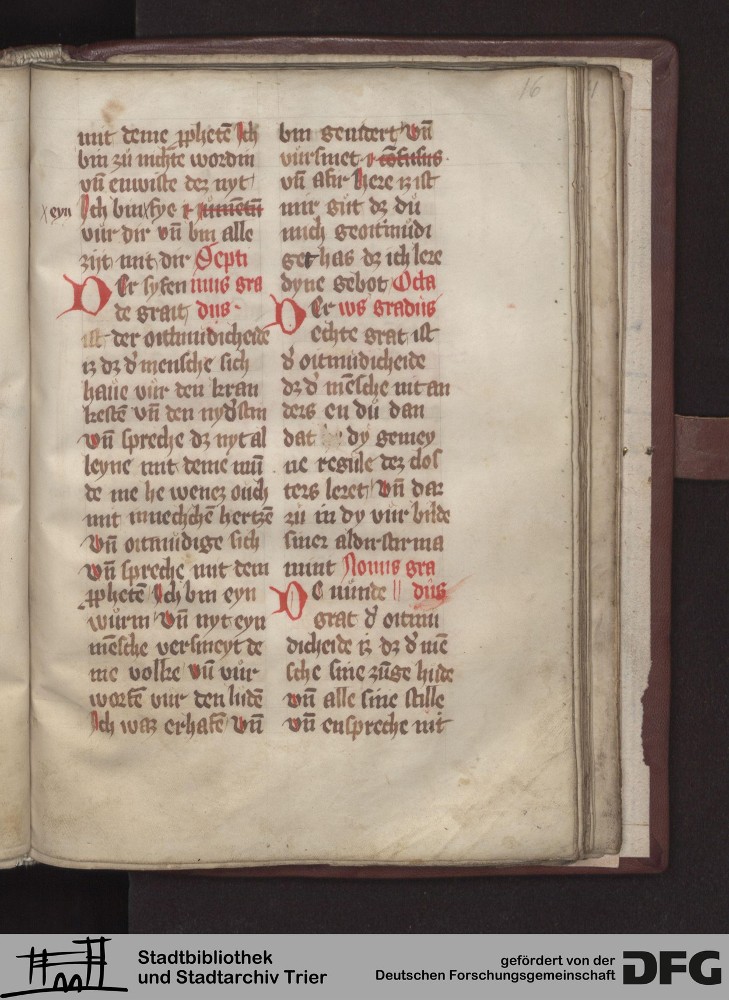 16
mit deme ꝓphetē Ich
bin zu nichte wordin
vn̄ enwiste dez nyt
eyn
Ich bin fye ⁊ iumētū
vur dir vn̄ bin alle
zijt mit dir Septi
Der syfen imus gra
de grait dus
ist der oitmudicheide
iz dz d' mensche sich
haue vur den kran
kestē vn̄ den nyd'stin
vn̄ spreche dz nyt al
leyne mit deme mū
de me he wenez ouch
mit muechchē hertzē
vn̄ oitmudige sich
vn̄ spreche mit dem
ꝓphetē Ich bin eyn
wurm vn̄ nyt eyn
mēsche versmeyt de
me volke vn̄ vur
worfē vur den lidē
Ich waz erhafē vn̄
bin genidert vn̄
vursmet ⁊ cōfusus
vn̄ afir here iz ist
mir gut dz du
mich geoitmudi
get has dz ich lere
dyne gebot Octa
Der ws gradus
echte grat ist
d' oitmudicheide
dz d' mēsche nit an
ders en du dan
dat dy gemey
ne regule dez clos
ters leret vn̄ dar
zu in dy vur bilde
siner aldirstir ma
nint Nonus gra
De nunde dus
grat d' oitmu
dicheide iz dz d' mē
sche sine zunge hude
vn̄ alle sine stille
vn̄ enspreche nit
Stadtbibliothek
und Stadtarchiv Trier
gefördert von der
Deutschen Forschungsgemeinschaft
DFG